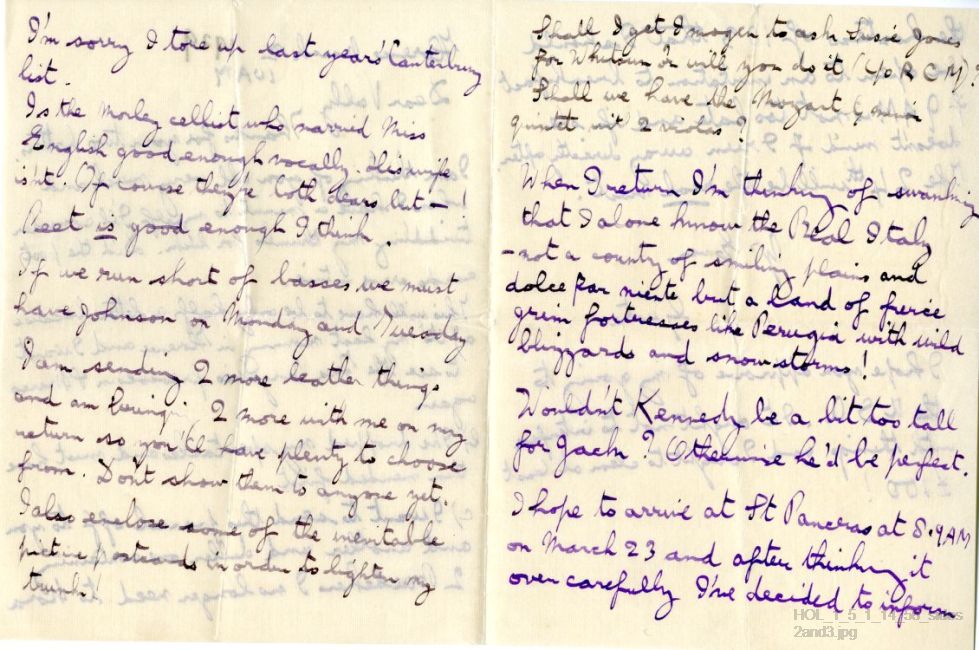 I'm sorry I tore up last year's Canterbury
list.
Is the Morley cellist who married Miss
English good enough vocally. His wife
isn't. Of course they're both dears but — !
Peet is good enough I think.
If we run short of basses we must
have Johnson on Monday and Tuesday
I am sending 2 more leather things
and am bringing 2 more with me on my
return so you'll have plenty to choose
from. Don't show them to anyone yet.
I also enclose some of the inevitable
picture postcards in order to lighten my
trunk!
Shall I get Imogen to ask Susie Jones
for Whitsun or will you do it (c/o R C M)?
Shall we have the Mozart G mi
quintet wit 2 violas?
When I return I'm thinking of swanking
that I alone know the Real Italy
- not a country of smiling plains and
dolce far niente but a land of fierce
grim fortresses like Perugia with wild
blizzards and snowstorms!
Wouldn't Kennedy be a bit too tall
for Jack? Otherwise he'd be perfect.
I hope to arrive at St Pancras at 8.9 AM
on March 23 and after thinking it
over carefully I've decided to inform
HOL_1_5_1_14_58_sides
2and3.jpg